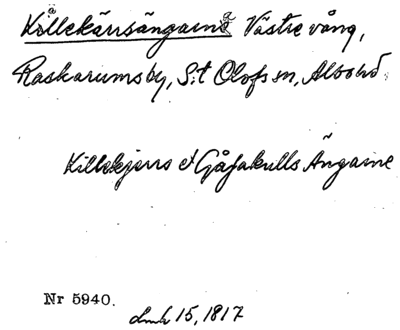 Källekärrsängarna Västre vång,
Raskarumsby, S:t Olofs sn, Albo hd.
Killekjerrs et Gåsakulls Ängarne
Nr 5940.
15, 1817